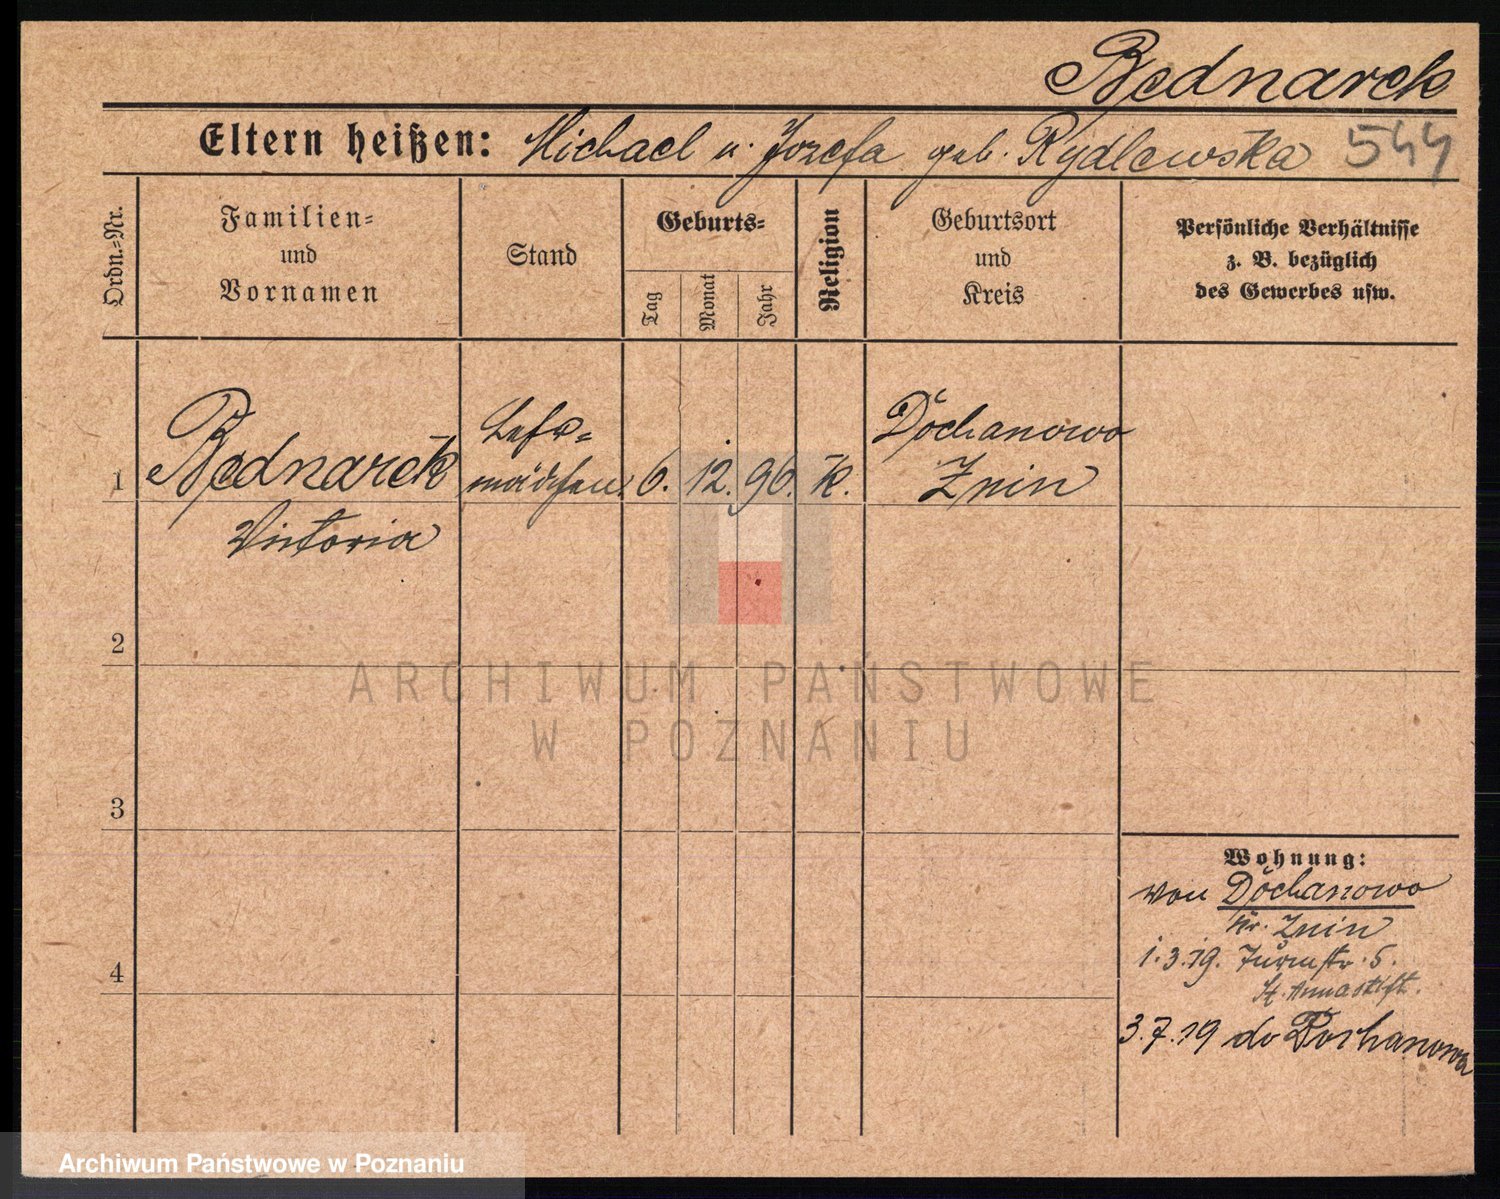 Bednarek
Eltern heißen: Michael u. Jozefa geb. Rydlewska 544
Ordn.=Nr.
Familien=
und
Vornamen
Stand
Geburts=
Tag
Monat
Jahr
Religion
Geburtsort
und
Kreis
Persönliche Verhältnisse
z. B. bezüglich
des Gewerbes usw.
1
Bednarek
Victoria
Lehr=
mädchen
6. 12. 96. k.
Dochanowo
Znin
2
3
4
Wohnung:
von Dochanowo
Kr. Znin
1.3.19. Turmstr. 5.
St. Annastift.
3.7.19 do Dochanowa
ARCHIWUM PAŃSTWOWE
W POZNANIU
Archiwum Państwowe w Poznaniu